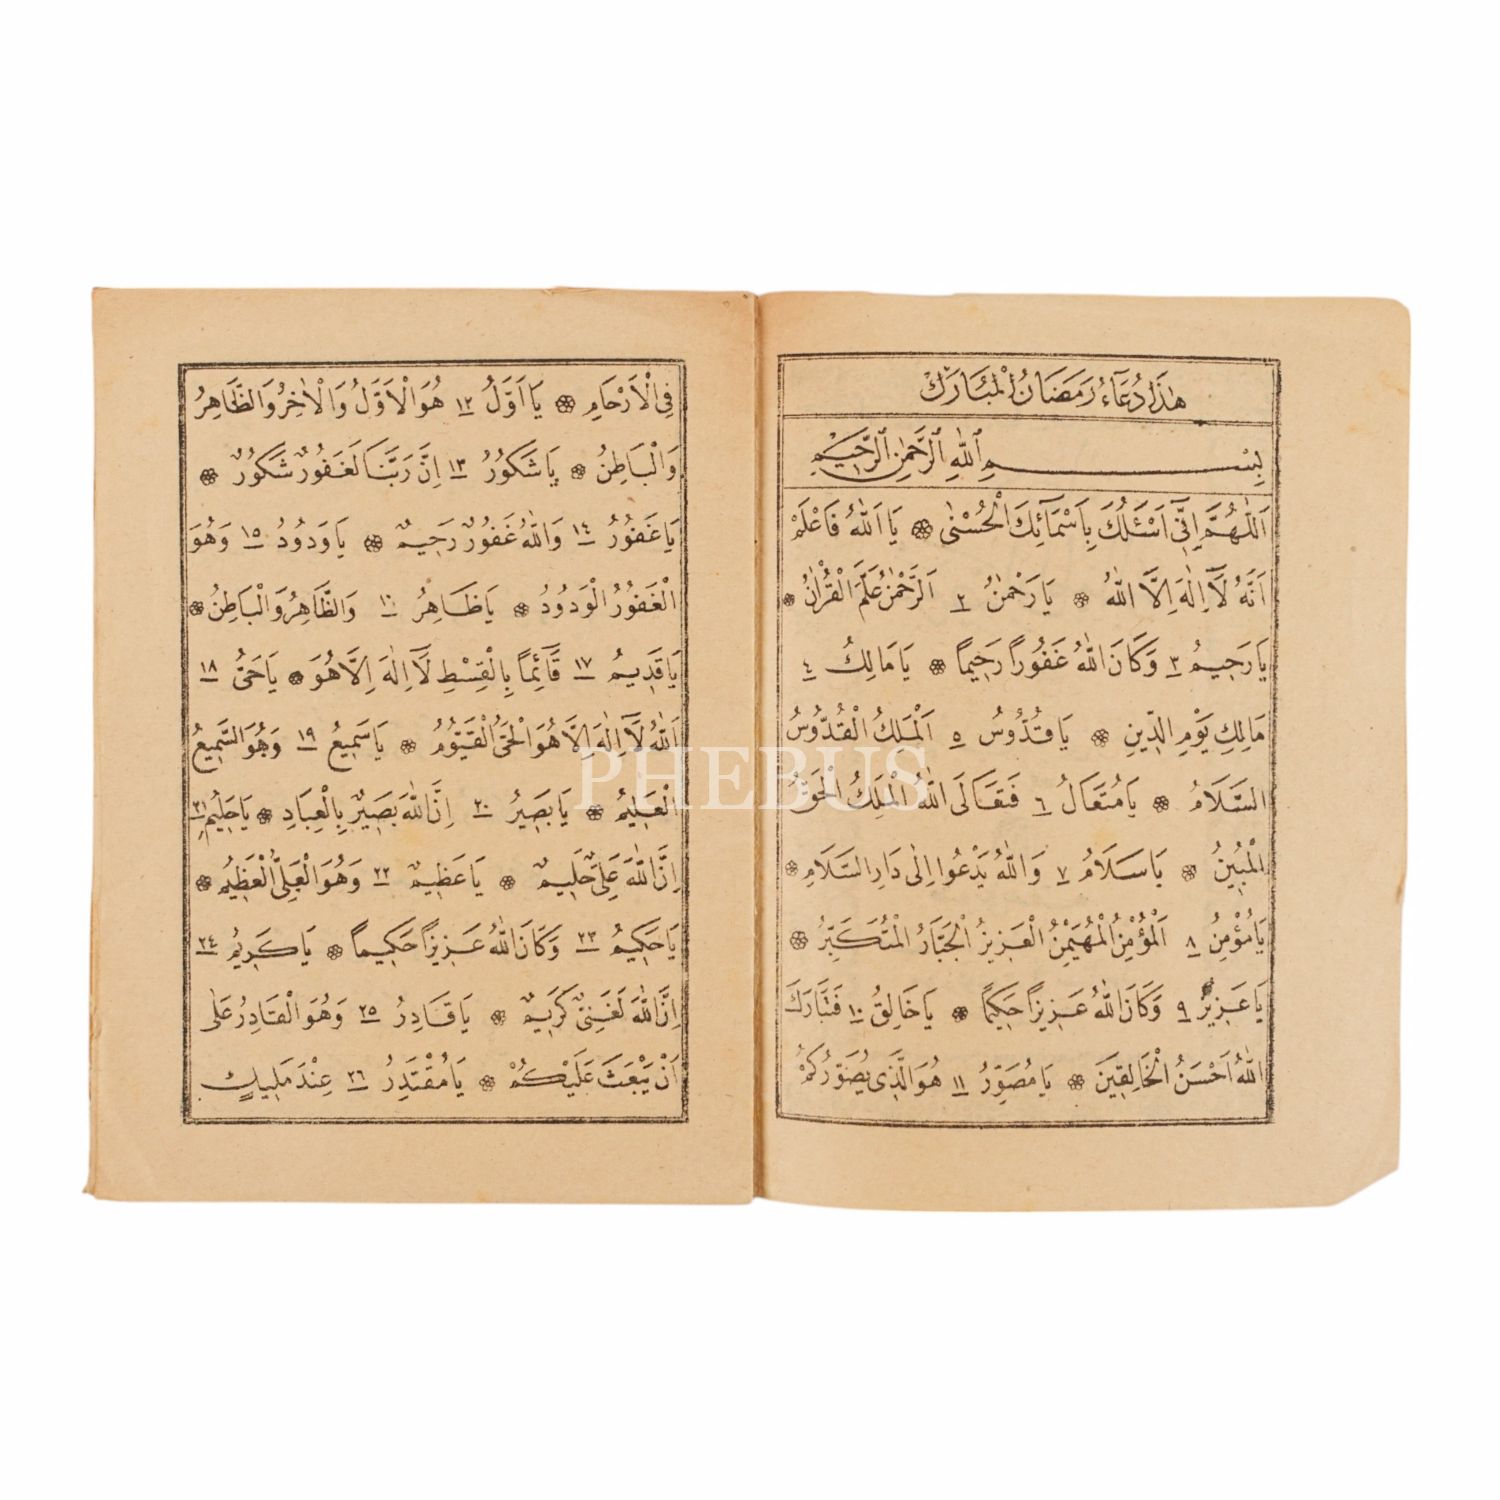 هٰذَا دُعَآءُ رَمَضَانُ الْمُبَارَكْ
بِسْمِ اللّٰهِ الرَّحْمٰنِ الرَّحِيمِ
اَللّٰهُمَّ اِنّٖى اَسْئَلُكَ بِاَسْمَآئِكَ الْحُسْنٰى ❁ يَا اَللّٰهُ فَاعْلَمْ
اَنَّهُ لَآ اِلٰهَ اِلَّا اللّٰهُ ❁ يَا رَحْمٰنُ ٢ اَلرَّحْمٰنُ عَلَّمَ الْقُرْاٰنُ ❁
يَا رَحٖيمُ ٣ وَكَانَ اللّٰهُ غَفُورًا رَحٖيمًا ❁ يَا مَالِكُ ٤
مَالِكِ يَوْمِ الدّٖينِ ❁ يَا قُدُّوسُ ٥ اَلْمَلِكُ الْقُدُّوسُ
السَّلَامُ ❁ يَا مُتَعَالُ ٦ فَتَعَالَى اللّٰهُ الْمَلِكُ الْحَقُّ
الْمُبٖينُ ❁ يَا سَلَامُ ٧ وَاللّٰهُ يَدْعُوا اِلٰى دَارِ السَّلَامِ ❁
يَا مُؤْمِنُ ٨ اَلْمُؤْمِنُ الْمُهَيْمِنُ الْعَزٖيزُ الْجَبَّارُ الْمُتَكَبِّرُ ❁
يَا عَزٖيزُ ٩ وَكَانَ اللّٰهُ عَزٖيزًا حَكٖيمًا ❁ يَا خَالِقُ ١٠ فَتَبَارَكَ
اللّٰهُ اَحْسَنُ الْخَالِقٖينَ ❁ يَا مُصَوِّرُ ١١ هُوَ الَّذٖى يُصَوِّرُكُمْ
فِى الْاَرْحَامِ ❁ يَا اَوَّلُ ١٢ هُوَ الْاَوَّلُ وَالْاٰخِرُ وَالظَّاهِرُ
وَالْبَاطِنُ ❁ يَا شَكُورُ ١٣ اِنَّ رَبَّنَا لَغَفُورٌ شَكُورٌ ❁
يَا غَفُورُ ١٤ وَاللّٰهُ غَفُورٌ رَحٖيمٌ ❁ يَا وَدُودُ ١٥ وَهُوَ
الْغَفُورُ الْوَدُودُ ❁ يَا ظَاهِرُ وَالظَّاهِرُ وَالْبَاطِنُ ❁
يَا قَدٖيمُ ١٧ قَآئِمًا بِالْقِسْطِ لَآ اِلٰهَ اِلَّا هُوَ ❁ يَا حَىُّ ١٨
اَللّٰهُ لَآ اِلٰهَ اِلَّا هُوَ الْحَىُّ الْقَيُّومُ ❁ يَا سَمٖيعُ ١٩ وَهُوَ السَّمٖيعُ
الْعَلٖيمُ ❁ يَا بَصٖيرُ ٢٠ اِنَّ اللّٰهَ بَصٖيرٌ بِالْعِبَادِ ❁ يَا حَلٖيمُ ٢١
اِنَّ اللّٰهَ عَلِىٌّ حَلٖيمٌ ❁ يَا عَظٖيمُ ٢٢ وَهُوَ الْعَلِىُّ الْعَظٖيمُ ❁
يَا حَكٖيمُ ٢٣ وَكَانَ اللّٰهُ عَزٖيزًا حَكٖيمًا ❁ يَا كَرٖيمُ ٢٤
اِنَّ اللّٰهَ لَغَنِىٌّ كَرٖيمٌ ❁ يَا قَادِرُ ٢٥ وَهُوَ الْقَادِرُ عَلٰى
اَنْ يَبْعَثَ عَلَيْكُمْ ❁ يَا مُقْتَدِرُ ٢٦ عِنْدَ مَلٖيكٍ
PHEBUS